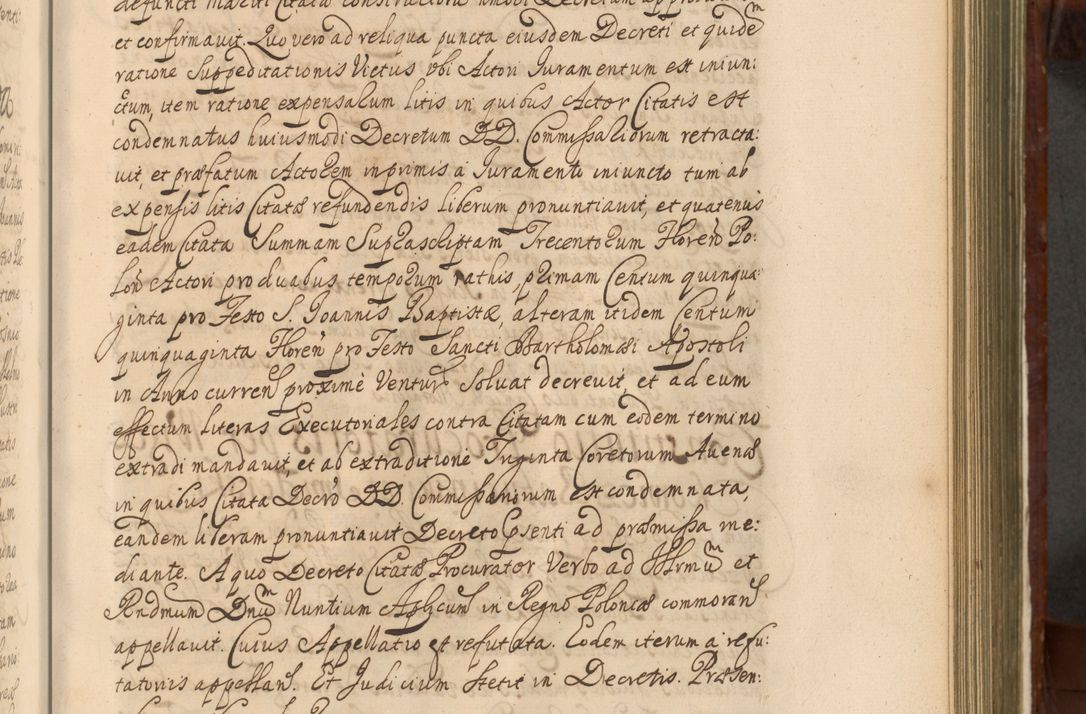 et confirmavit. Quo vero ad reliqua puncta eiusdem Decreti et quidem
ratione Suppeditationis Victus vbi Actori Iuramentum est iniun:
ctum, item ratione expensarum litis in quibus Actor Citatis est
condemnatus huiusmodi Decretum DD. Commissariorum retracta:
uit, et præfatum Actorem inprimis a Iuramento iniuncto tum ab
expensis litis Citatæ refundendis liberum pronuntiauit, et quatenus
eadem Citata Summam Suprascriptam Trecentorum Floren̄ Po:
lon̄ Actori pro duabus temporum rathis, primam Centum quinqua
ginta pro Festo S. Ioannis Baptistæ, alteram itidem Centum
quinquaginta Floren̄ pro Festo Sancti Bartholomæi Apostoli
in Anno curren̄ proximè Ventur̄ Soluat decreuit, et ad eum
effectum literas Executoriales contra Citatam cum eodem termino
extradi mandauit, et ab extraditione Triginta Coretorum Auenæ
in quibus Citata Decrō DD. Commissariorum est condemnata,
eandem liberam pronuntiauit Decreto psenti ad præmissa me:
diante. A quo Decreto Citatæ Procurator Verbo ad Illrmū et
Rndmum Dnū Nuntium Aplicum in Regno Poloniæ commoran̄
appellauit. Cuius Appellatio est refutata. Eodem iterum a refu:
tatoriis appellan̄. Et Judicium stetit in Decretis. Præsen: